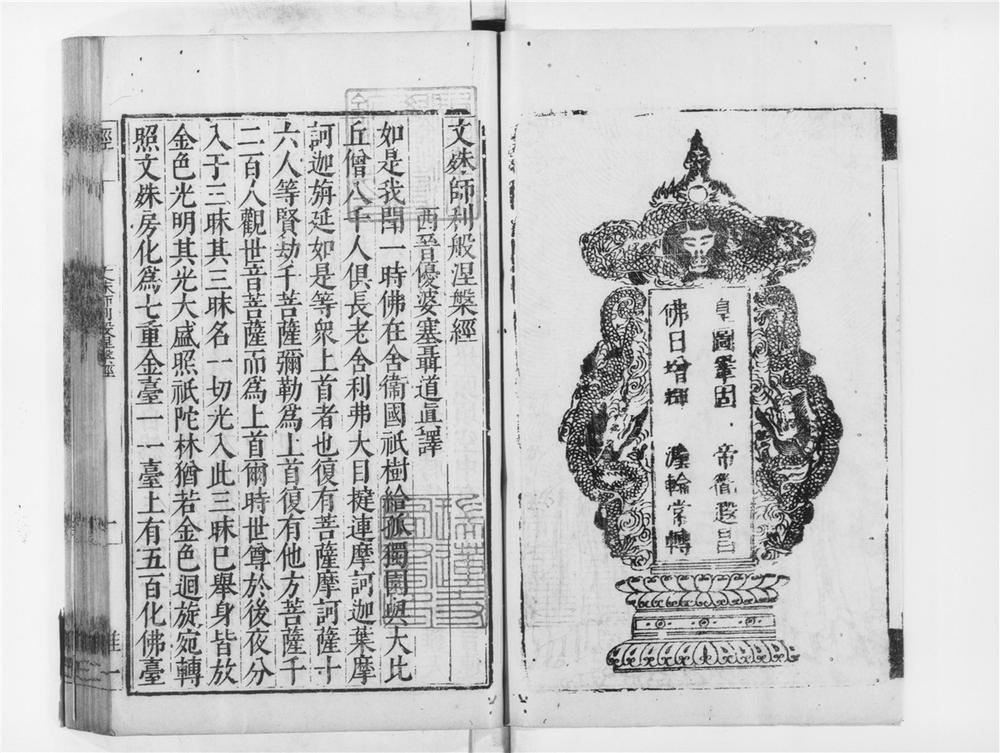 皇圖鞏固 帝道遐昌
佛日增輝 法輪常轉
文殊師利般涅槃經
西晉優婆塞聶道眞譯
如是我聞一時佛在舍衞國祇樹給孤獨園與大比
丘僧八千人俱長老舍利弗大目揵連摩訶迦葉摩
訶迦旃延如是等衆上首者也復有菩薩摩訶薩十
六人等賢劫千菩薩彌勒爲上首復有他方菩薩千
二百人觀世音菩薩而爲上首爾時世尊於後夜分
入于三昧其三昧名一切光入此三昧已舉身皆放
金色光明其光大盛照祇陀林猶若金色迴旋宛轉
照文殊房化爲七重金臺一一臺上有五百化佛臺